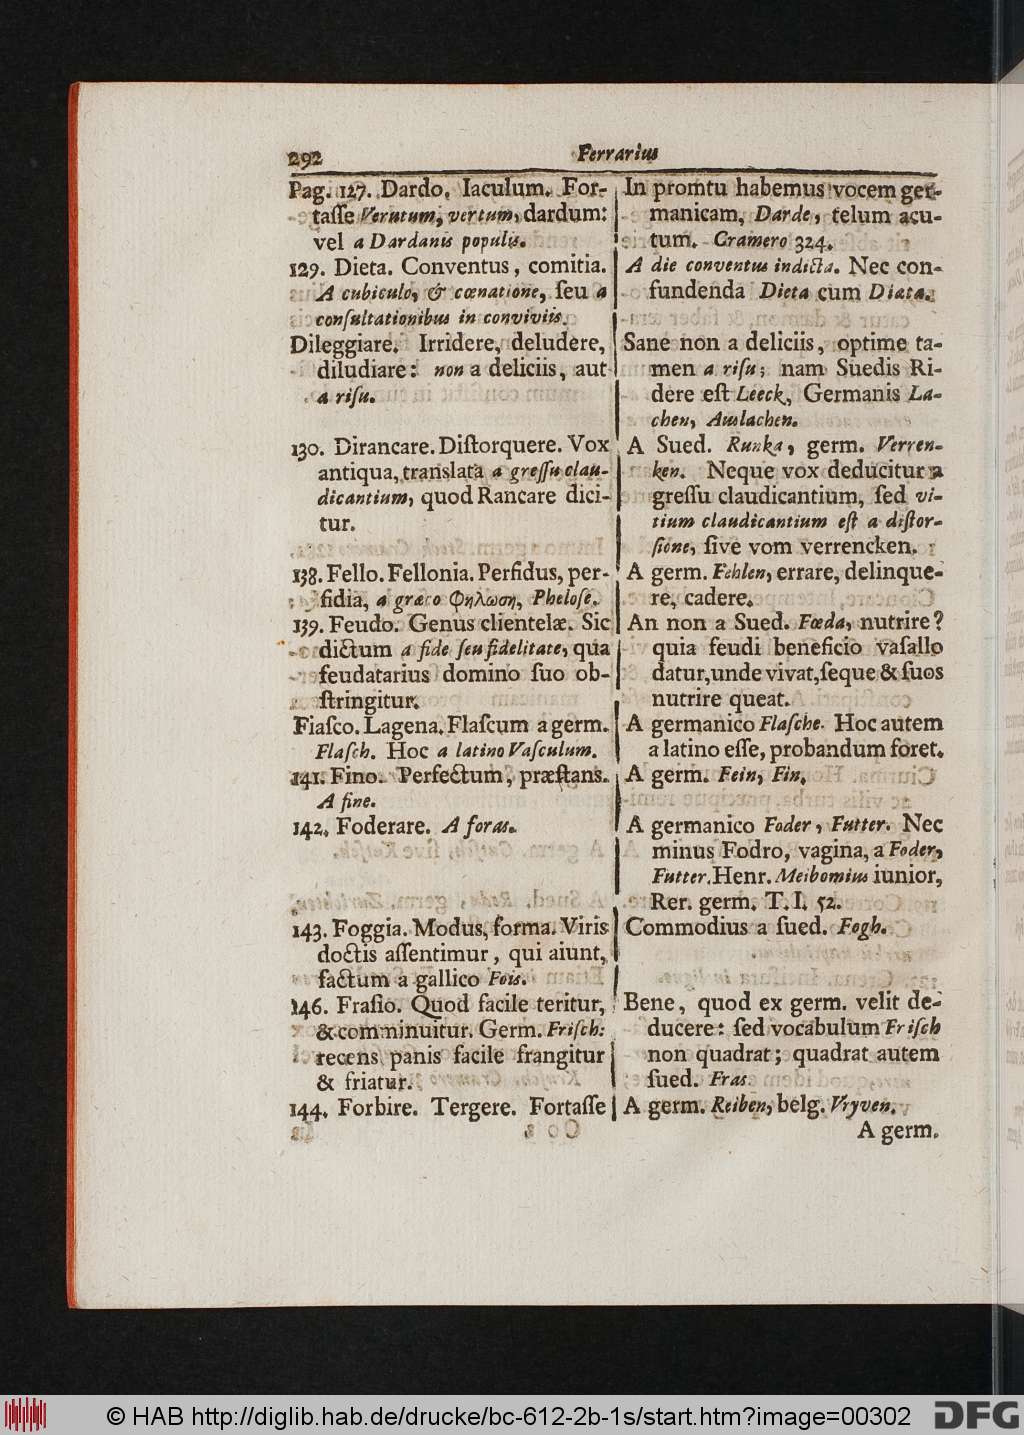 292 Ferrarius
Pag. 127. Dardo. Iaculum. For-
taſſe Verutum, vertum, dardum:
vel a Dardanis populis.
129. Dieta. Conventus, comitia.
A cubiculo, & cœnatione, ſeu a
conſultationibus in conviviis.
Dileggiare. Irridere, deludere,
diludiare: non a deliciis, aut
a riſu.
130. Dirancare. Diſtorquere. Vox
antiqua, translata a greſſu clau-
dicantium, quod Rancare dici-
tur.
138. Fello. Fellonia. Perfidus, per-
fidia, a græco Φηλωση, Pheloſe.
139. Feudo. Genus clientelæ. Sic
dictum a fide ſeu fidelitate, quia
feudatarius domino ſuo ob-
ſtringitur.
Fiaſco. Lagena. Flaſcum a germ.
Flaſch. Hoc a latino Vaſculum.
141. Fino. Perfectum, præſtans.
A fine.
142. Foderare. A foras.
143. Foggia. Modus, forma. Viris
doctis aſſentimur, qui aiunt,
factum a gallico Fois.
146. Fraſio. Quod facile teritur,
& comminuitur. Germ. Friſch:
recens panis facile frangitur
& friatur.
144. Forbire. Tergere. Fortaſſe
In promtu habemus vocem ger-
manicam, Darde, telum acu-
tum. Cramero 324.
A die conventus indicta. Nec con-
fundenda Dieta cum Diæta.
Sane non a deliciis, optime ta-
men a riſu; nam Suedis Ri-
dere eſt Leeck, Germanis La-
chen, Auslachen.
A Sued. Runka, germ. Verren-
ken. Neque vox deducitur a
greſſu claudicantium, ſed vi-
tium claudicantium eſt a diſtor-
ſione, ſive vom verrencken.
A germ. Fehlen, errare, delinque-
re, cadere.
An non a Sued. Fœda, nutrire?
quia feudi beneficio vaſallo
datur, unde vivat, ſeque & ſuos
nutrire queat.
A germanico Flaſche. Hoc autem
a latino eſſe, probandum foret.
A germ. Fein, Fin.
A germanico Foder, Futter. Nec
minus Fodro, vagina, a Foder,
Futter. Henr. Meibomius iunior,
Rer. germ. T. I. 52.
Commodius a ſued. Fogh.
Bene, quod ex germ. velit de-
ducere: ſed vocabulum Friſch
non quadrat; quadrat autem
ſued. Fras
A germ. Reiben, belg. Vryven.
A germ.
© HAB http://diglib.hab.de/drucke/bc-612-2b-1s/start.htm?image=00302
DFG